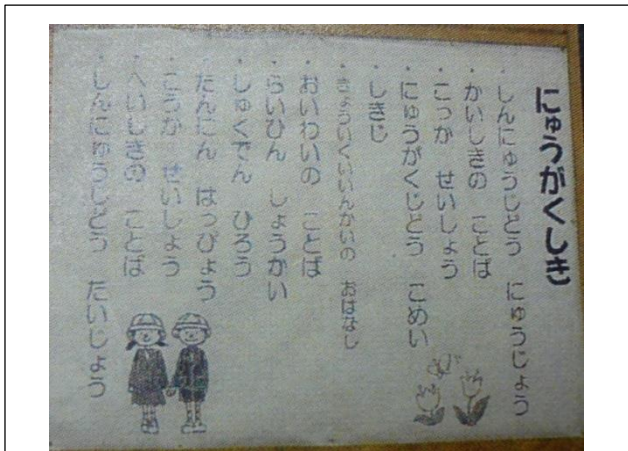 にゅうがくしき
・しんにゅうじどう　にゅうじょう
・かいしきの　ことば
・こっか　せいしょう
・にゅうがくじどう　こめい
・しきじ
・きょういくいいんかいの　おはなし
・おいわいの　ことば
・らいひん　しょうかい
・しゅくでん　ひろう
・たんにん　はっぴょう
・こうか　せいしょう
・へいしきの　ことば
・しんにゅうじどう　たいじょう